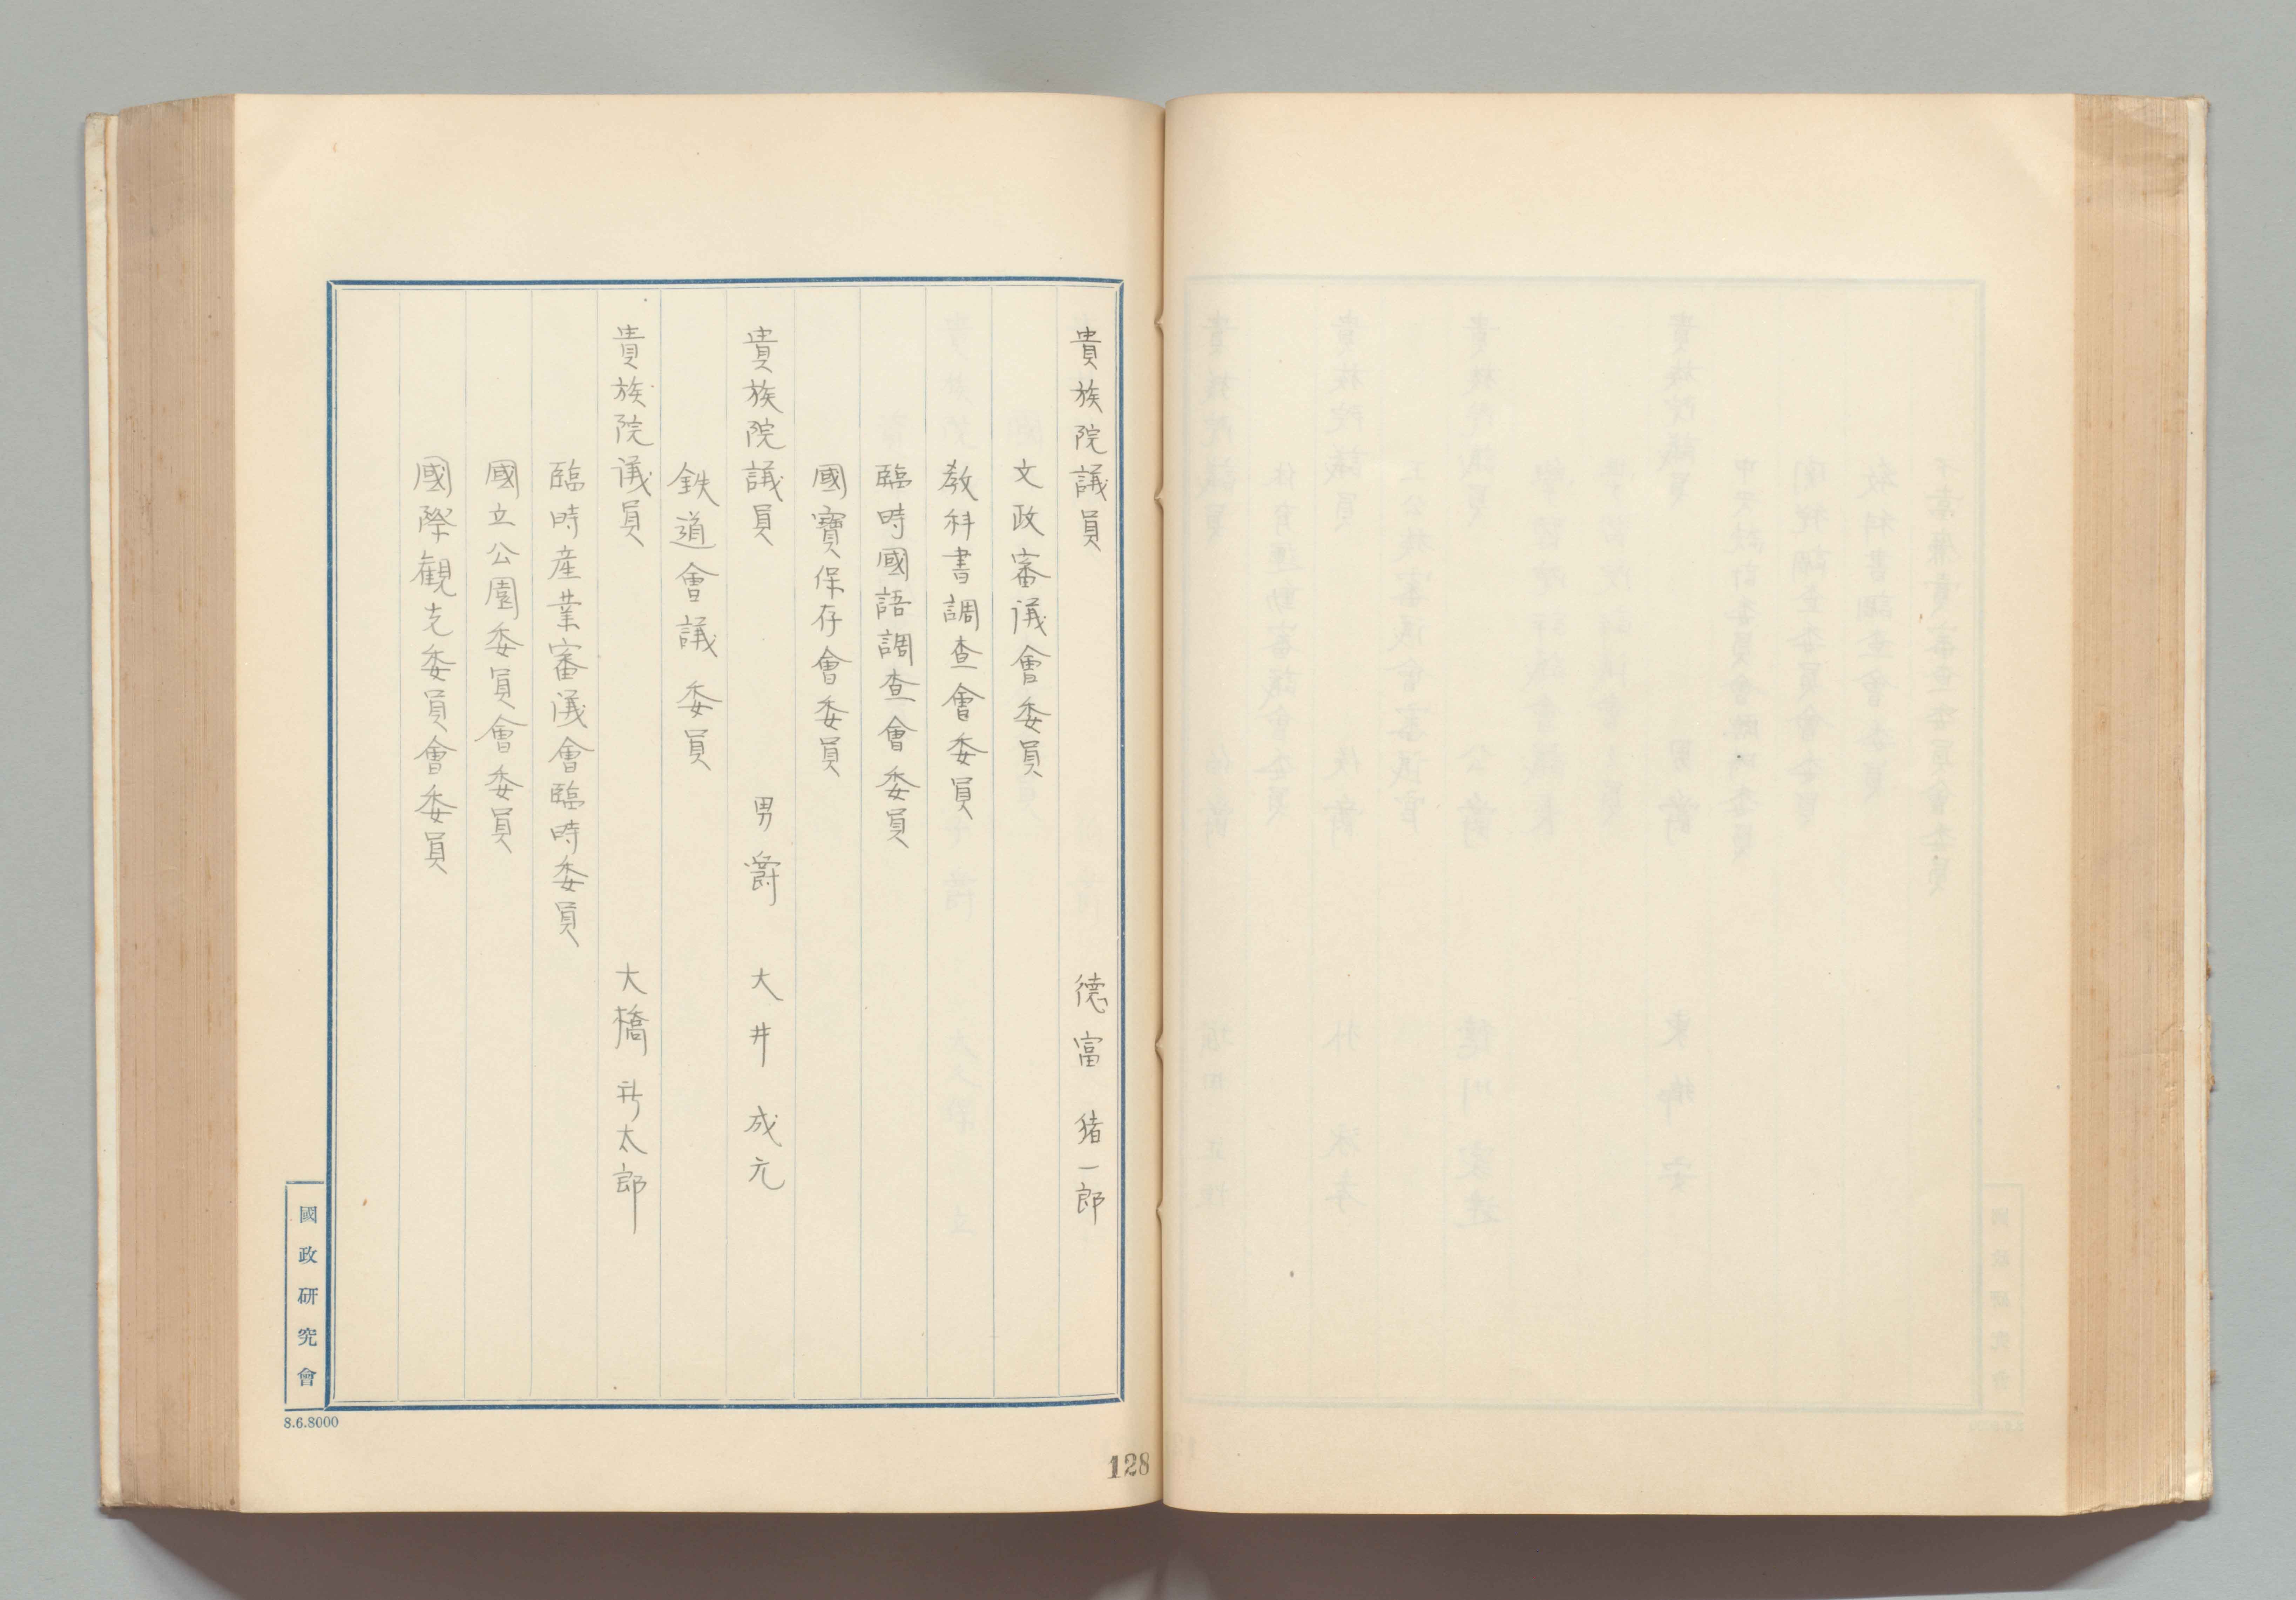 貴族院議員　德富　猪一郎
文政審議會委員
教科書調査會委員
臨時國語調査會委員
國寶保存會委員
貴族院議員　男爵　大井　成元
鉄道會議委員
貴族院議員　大橋　新太郎
臨時産業審議會臨時委員
國立公園委員會委員
國際観光委員會委員
國政研究會
8.6.8000
128